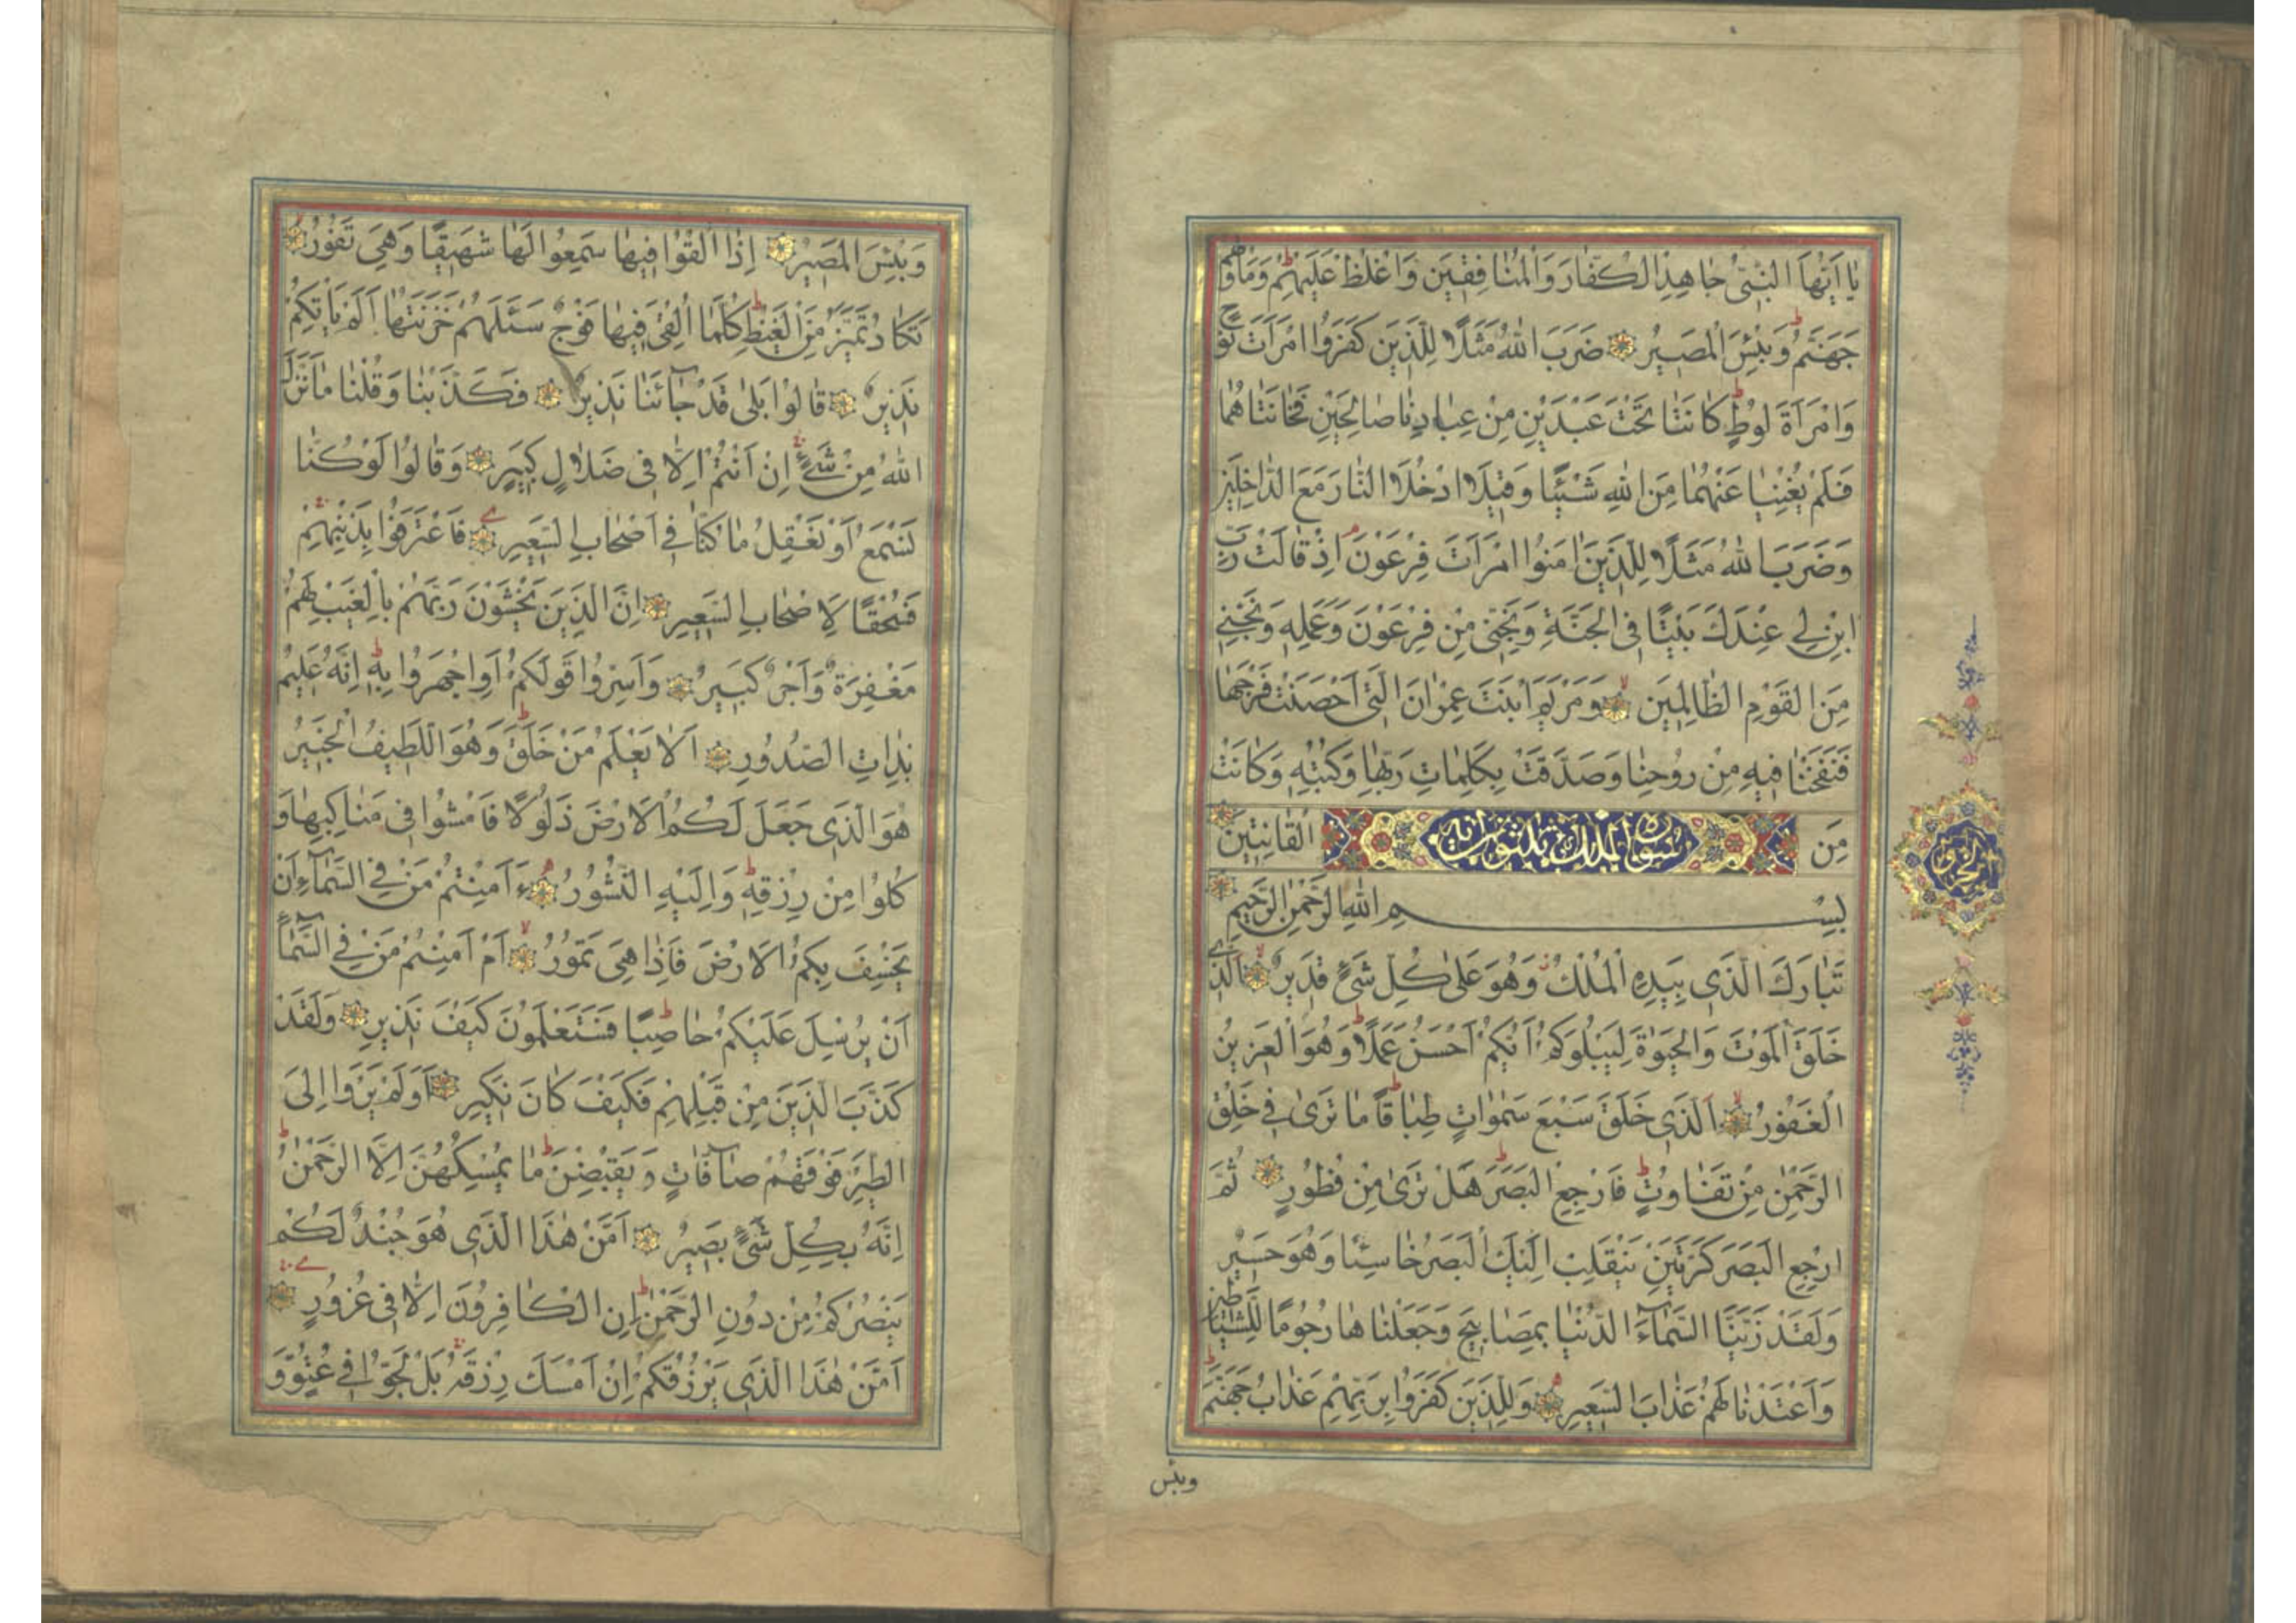 يَا أَيُّهَا النَّبِيُّ جَاهِدِ الْكُفَّارَ وَالْمُنَافِقِينَ وَاغْلُظْ عَلَيْهِمْ وَمَأْوٰيهُمْ
جَهَنَّمُ وَبِئْسَ الْمَصِيرُ ضَرَبَ اللهُ مَثَلًا لِلَّذِينَ كَفَرُوا امْرَأَتَ نُوحٍ
وَامْرَأَةَ لُوطٍ كَانَتَا تَحْتَ عَبْدَيْنِ مِنْ عِبَادِنَا صَالِحَيْنِ فَخَانَتَاهُمَا
فَلَمْ يُغْنِيَا عَنْهُمَا مِنَ اللهِ شَيْئًا وَقِيلَ ادْخُلَا النَّارَ مَعَ الدَّاخِلِينَ
وَضَرَبَ اللهُ مَثَلًا لِلَّذِينَ اٰمَنُوا امْرَأَتَ فِرْعَوْنَ اِذْ قَالَتْ رَبِّ
ابْنِ لِي عِنْدَكَ بَيْتًا فِي الْجَنَّةِ وَنَجِّنِي مِنْ فِرْعَوْنَ وَعَمَلِهِ وَنَجِّنِي
مِنَ الْقَوْمِ الظَّالِمِينَ وَمَرْيَمَ ابْنَتَ عِمْرٰانَ الَّتِي اَحْصَنَتْ فَرْجَهَا
فَنَفَخْنَا فِيهِ مِنْ رُوحِنَا وَصَدَّقَتْ بِكَلِمَاتِ رَبِّهَا وَكُتُبِهِ وَكَانَتْ
مِنَ الْقَانِتِينَ
سورة الملك ثلثون آية
بِسْمِ اللهِ الرَّحْمٰنِ الرَّحِيمِ
تَبَارَكَ الَّذِي بِيَدِهِ الْمُلْكُ وَهُوَ عَلَى كُلِّ شَيْءٍ قَدِيرٌ اَلَّذِي
خَلَقَ الْمَوْتَ وَالْحَيٰوةَ لِيَبْلُوَكُمْ اَيُّكُمْ اَحْسَنُ عَمَلًا وَهُوَ الْعَزِيزُ
الْغَفُورُ اَلَّذِي خَلَقَ سَبْعَ سَمٰوَاتٍ طِبَاقًا مَا تَرٰى فِي خَلْقِ
الرَّحْمٰنِ مِنْ تَفَاوُتٍ فَارْجِعِ الْبَصَرَ هَلْ تَرٰى مِنْ فُطُورٍ ثُمَّ
ارْجِعِ الْبَصَرَ كَرَّتَيْنِ يَنْقَلِبْ اِلَيْكَ الْبَصَرُ خَاسِئًا وَهُوَ حَسِيرٌ
وَلَقَدْ زَيَّنَّا السَّمَاءَ الدُّنْيَا بِمَصَابِيحَ وَجَعَلْنَاهَا رُجُومًا لِلشَّيَاطِينِ
وَاَعْتَدْنَا لَهُمْ عَذَابَ السَّعِيرِ وَلِلَّذِينَ كَفَرُوا بِرَبِّهِمْ عَذَابُ جَهَنَّمَ
وبئس
وَبِئْسَ الْمَصِيرُ اِذَا اُلْقُوا فِيهَا سَمِعُوا لَهَا شَهِيقًا وَهِيَ تَفُورُ
تَكَادُ تَمَيَّزُ مِنَ الْغَيْظِ كُلَّمَا اُلْقِيَ فِيهَا فَوْجٌ سَئَلَهُمْ خَزَنَتُهَا اَلَمْ يَأْتِكُمْ
نَذِيرٌ قَالُوا بَلٰى قَدْ جَائَنَا نَذِيرٌ فَكَذَّبْنَا وَقُلْنَا مَا نَزَّلَ
اللهُ مِنْ شَيْءٍ اِنْ اَنْتُمْ اِلَّا فِي ضَلَالٍ كَبِيرٍ وَقَالُوا لَوْ كُنَّا
نَسْمَعُ اَوْ نَعْقِلُ مَا كُنَّا فِي اَصْحَابِ السَّعِيرِ فَاعْتَرَفُوا بِذَنْبِهِمْ
فَسُحْقًا لِاَصْحَابِ السَّعِيرِ اِنَّ الَّذِينَ يَخْشَوْنَ رَبَّهُمْ بِالْغَيْبِ لَهُمْ
مَغْفِرَةٌ وَاَجْرٌ كَبِيرٌ وَاَسِرُّوا قَوْلَكُمْ اَوِ اجْهَرُوا بِهِ اِنَّهُ عَلِيمٌ
بِذَاتِ الصُّدُورِ اَلَا يَعْلَمُ مَنْ خَلَقَ وَهُوَ اللَّطِيفُ الْخَبِيرُ
هُوَ الَّذِي جَعَلَ لَكُمُ الْاَرْضَ ذَلُولًا فَامْشُوا فِي مَنَاكِبِهَا وَ
كُلُوا مِنْ رِزْقِهِ وَاِلَيْهِ النُّشُورُ ءَاَمِنْتُمْ مَنْ فِي السَّمَاءِ اَنْ
يَخْسِفَ بِكُمُ الْاَرْضَ فَاِذَا هِيَ تَمُورُ اَمْ اَمِنْتُمْ مَنْ فِي السَّمَاءِ
اَنْ يُرْسِلَ عَلَيْكُمْ حَاصِبًا فَسَتَعْلَمُونَ كَيْفَ نَذِيرِ وَلَقَدْ
كَذَّبَ الَّذِينَ مِنْ قَبْلِهِمْ فَكَيْفَ كَانَ نَكِيرِ اَوَلَمْ يَرَوْا اِلَى
الطَّيْرِ فَوْقَهُمْ صَافَّاتٍ وَيَقْبِضْنَ مَا يُمْسِكُهُنَّ اِلَّا الرَّحْمٰنُ
اِنَّهُ بِكُلِّ شَيْءٍ بَصِيرٌ اَمَّنْ هٰذَا الَّذِي هُوَ جُنْدٌ لَكُمْ
يَنْصُرُكُمْ مِنْ دُونِ الرَّحْمٰنِ اِنِ الْكَافِرُونَ اِلَّا فِي غُرُورٍ
اَمَّنْ هٰذَا الَّذِي يَرْزُقُكُمْ اِنْ اَمْسَكَ رِزْقَهُ بَلْ لَجُّوا فِي عُتُوٍّ وَ